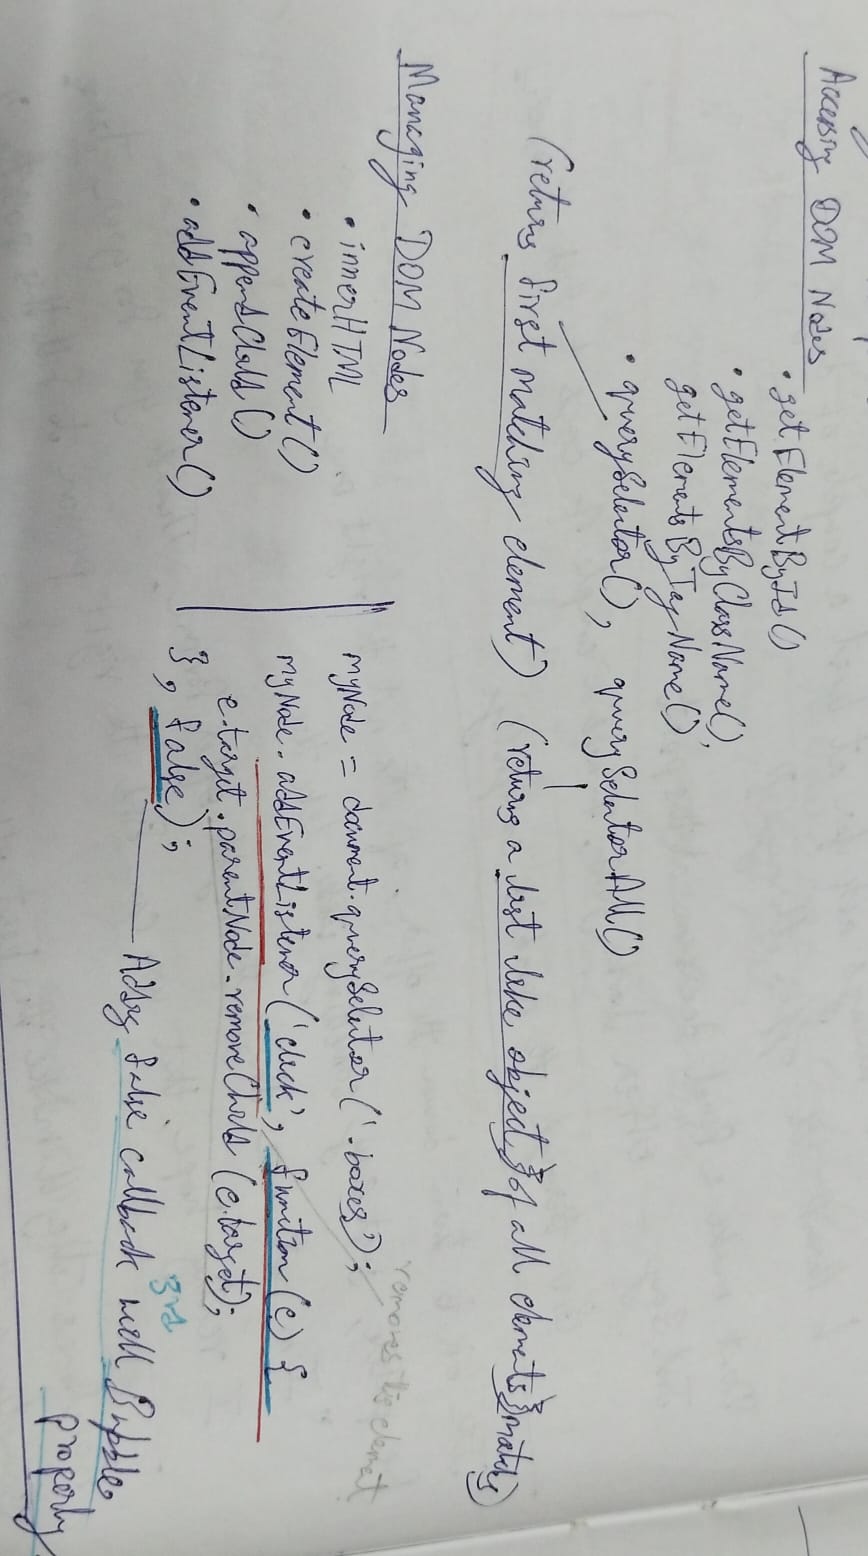 Accessing DOM Nodes
• getElementById()
• getElementsByClassName(),
getElementsByTagName()
• querySelector(), querySelectorAll()
(returns first matching element) (returns a list like object} of all elements} matches)
Managing DOM Nodes
• innerHTML
• createElement()
• appendChild()
• addEventListener()
removes this element
myNode = document.querySelector('.boxes');
myNode.addEventListener('click', function(e) {
e.target.parentNode.removeChild(e.target);
}, false);
3rd
Adding false callback will Bubble
property